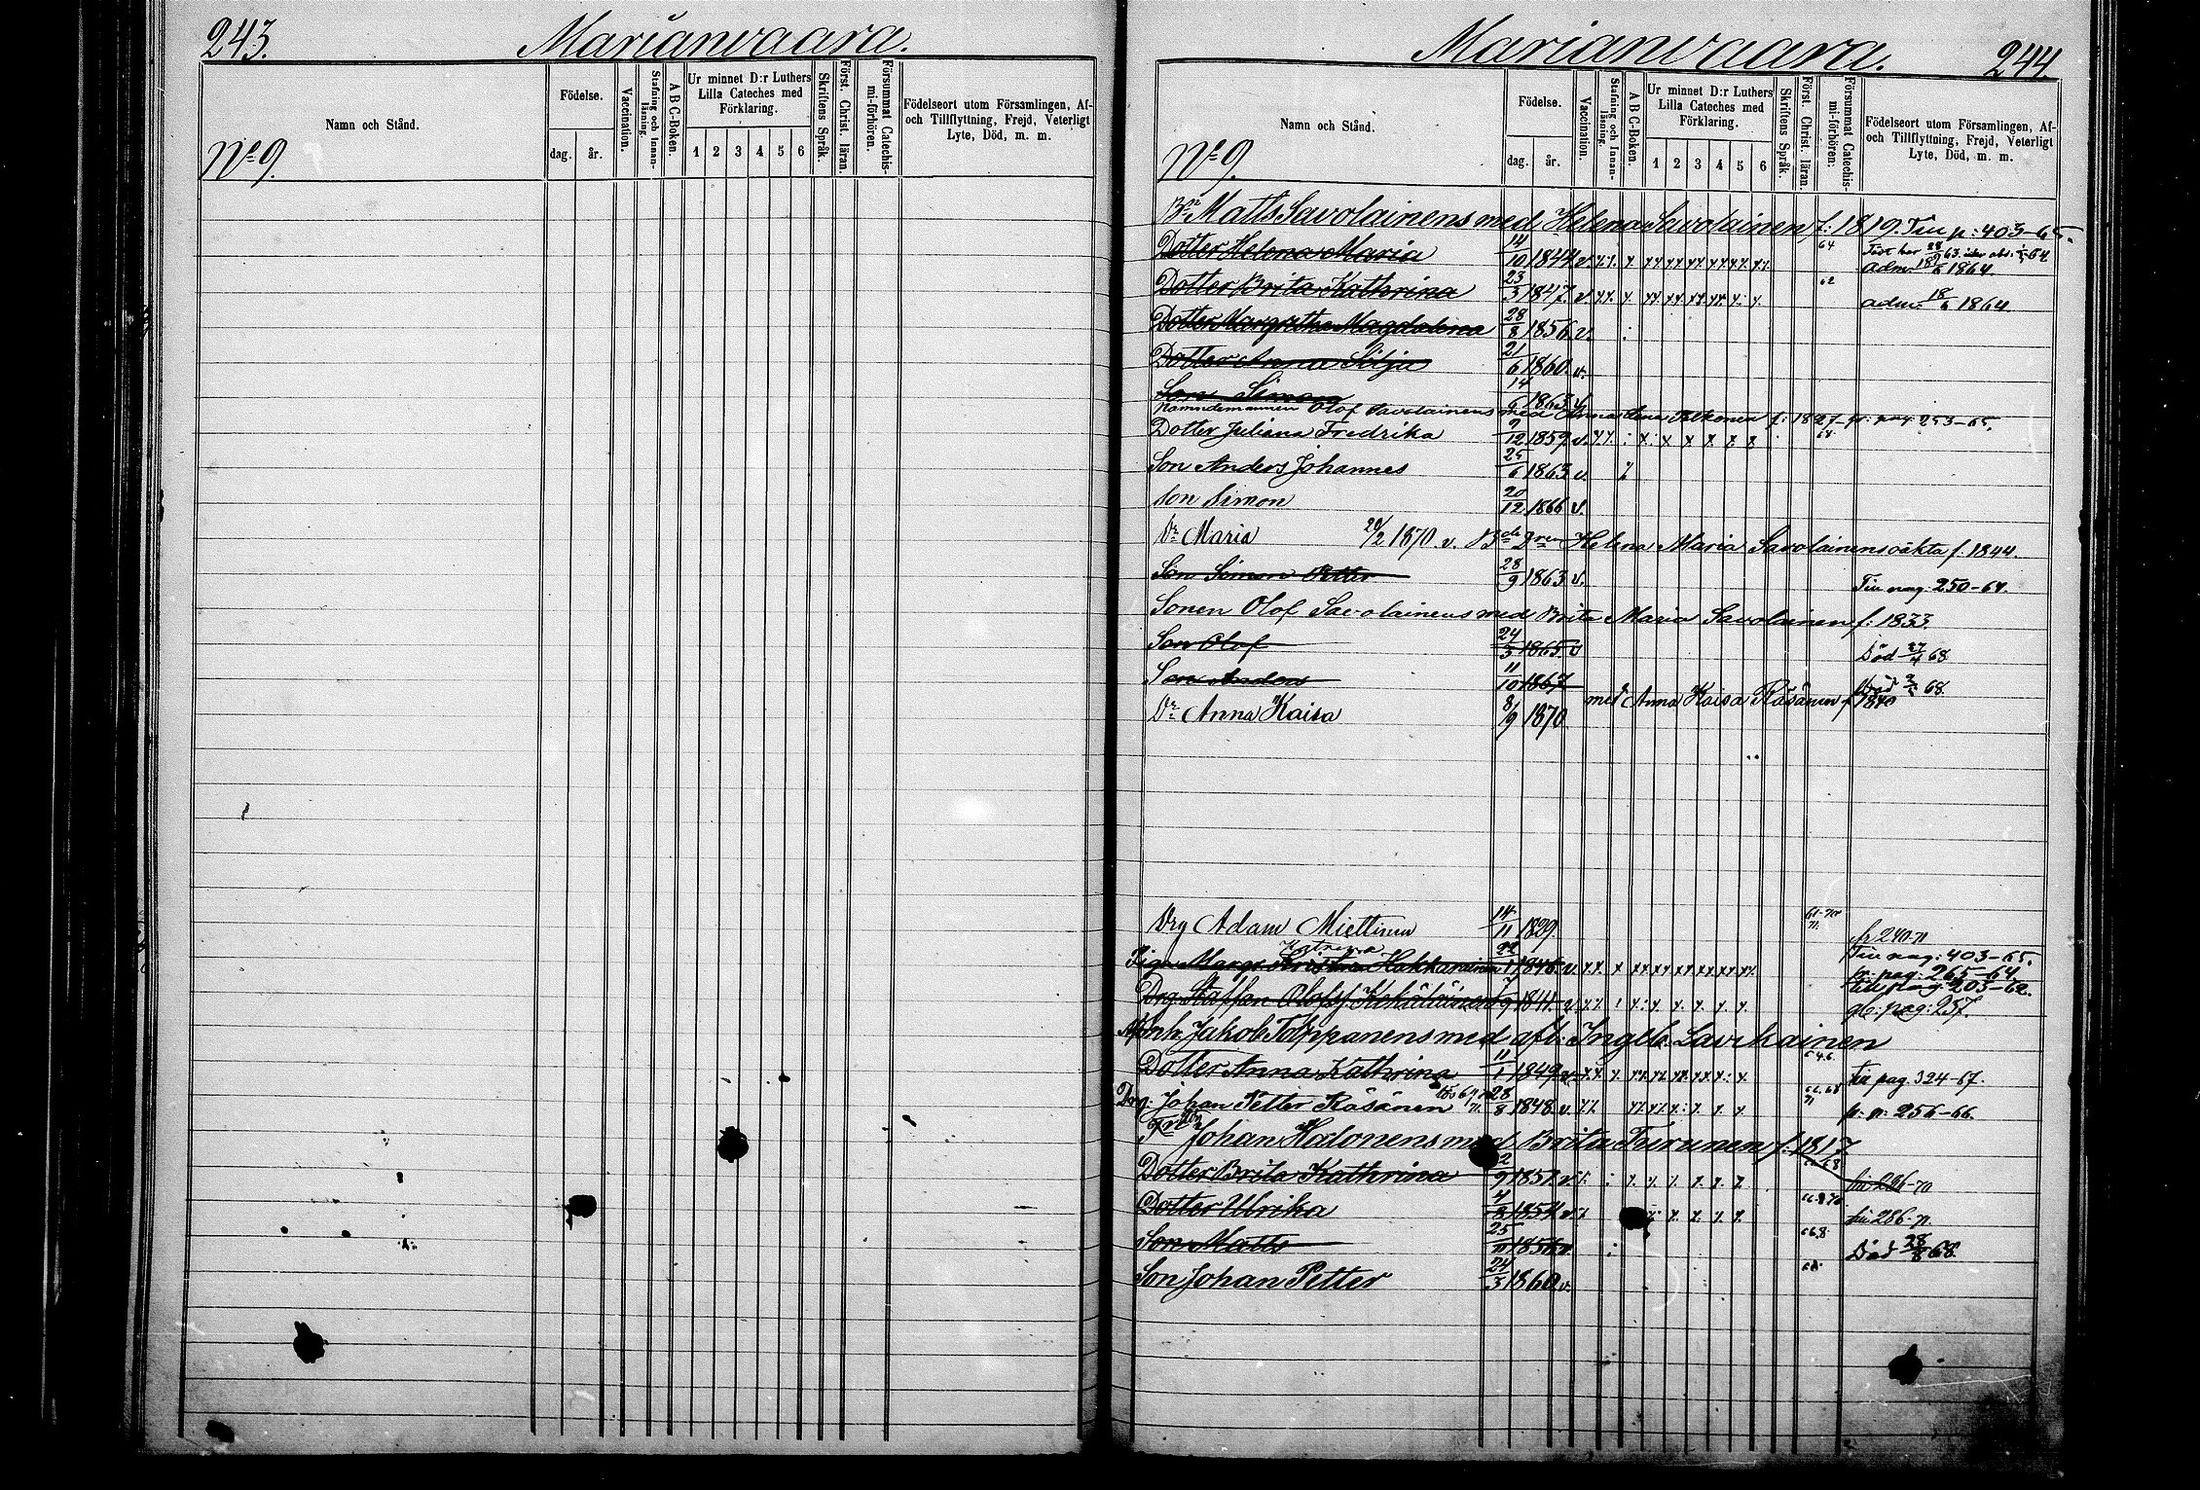 243. Marianvaara.
Namn och Stånd.
Födelse.
dag. år.
Vaccination.
Stafning och Innanläsning.
A B C-Boken.
Ur minnet D:r Luthers Lilla Cateches med Förklaring.
1 2 3 4 5 6
Skriftens Språk.
Först. Christ. läran.
Försummat Catechismi-förhören.
Födelseort utom Församlingen, Af- och Tillflyttning, Frejd, Veterligt Lyte, Död, m. m.
No 9.
Marianvaara. 244.
Namn och Stånd.
Födelse.
dag. år.
Vaccination.
Stafning och Innanläsning.
A B C-Boken.
Ur minnet D:r Luthers Lilla Cateches med Förklaring.
1 2 3 4 5 6
Skriftens Språk.
Först. Christ. läran.
Försummat Catechismi-förhören.
Födelseort utom Församlingen, Af- och Tillflyttning, Frejd, Veterligt Lyte, Död, m. m.
No 9.
Matts Savolainens med Helena Savolainen f: 1819. p: 403-65.
Dotter Helena Maria 14/10 1844 v. 64
adm 1864
Dotter Brita Kathrina 23/3 1847 v. 62 adm 18/6 1864
Dotter Margretha Magdalena 28/8 1856 v.
Dotter Anna Silja 21/6 1860 v.
Son Simon 14/6 1863 v.
Nämndemannen Olof Savolainens med Anna f: 1827 pag 253-65.
Dotter Juliana Fredrika 9/12 1859 v.
Son Anders Johannes 25/6 1863 v.
Son Simon 20/12 1866 v.
Dr Maria 20/2 1870 v. Helena Maria Savolainens oäkta f. 1844.
Son Simon Petter 28/9 1863 v. pag: 250-64.
Sonen Olof Savolainens med Brita Maria Savolainen f: 1833.
Son Olof 24/3 1865 v Död 27/4 68
Son Anders 11/10 1867 68.
med Anna Kaisa Räsänen f 1840
Dr Anna Kaisa 8/9 1870
Drg Adam Miettinen 14/11 1839 fr 240-71
Katrina
Piga Margr Kristina Hakkarainen 22/1 1846 v. pag: 403-65.
fr: pag: 265-64.
Drg Staffan Olofsf. 1841 pag: 203-62.
pag: 257.
Inh. Jakob Tolppanens med afl: Ingeb. Laukkainen
Dotter Anna Kathrina 11/1 1849 v. pag. 324-67.
Drg: Johan Petter Räsänen 28/8 1848 v. fr. p: 256-66.
Johan Halonens med Brita Toivunen f: 1817
Dotter Brita Kathrina 2/9 1851 v. 286-70
Dotter Ulrika 4/8 1854 v. 286-71.
Son Matts 25/11 1856 v. Död 28/8 68.
Son Johan Petter 24/3 1860 v.